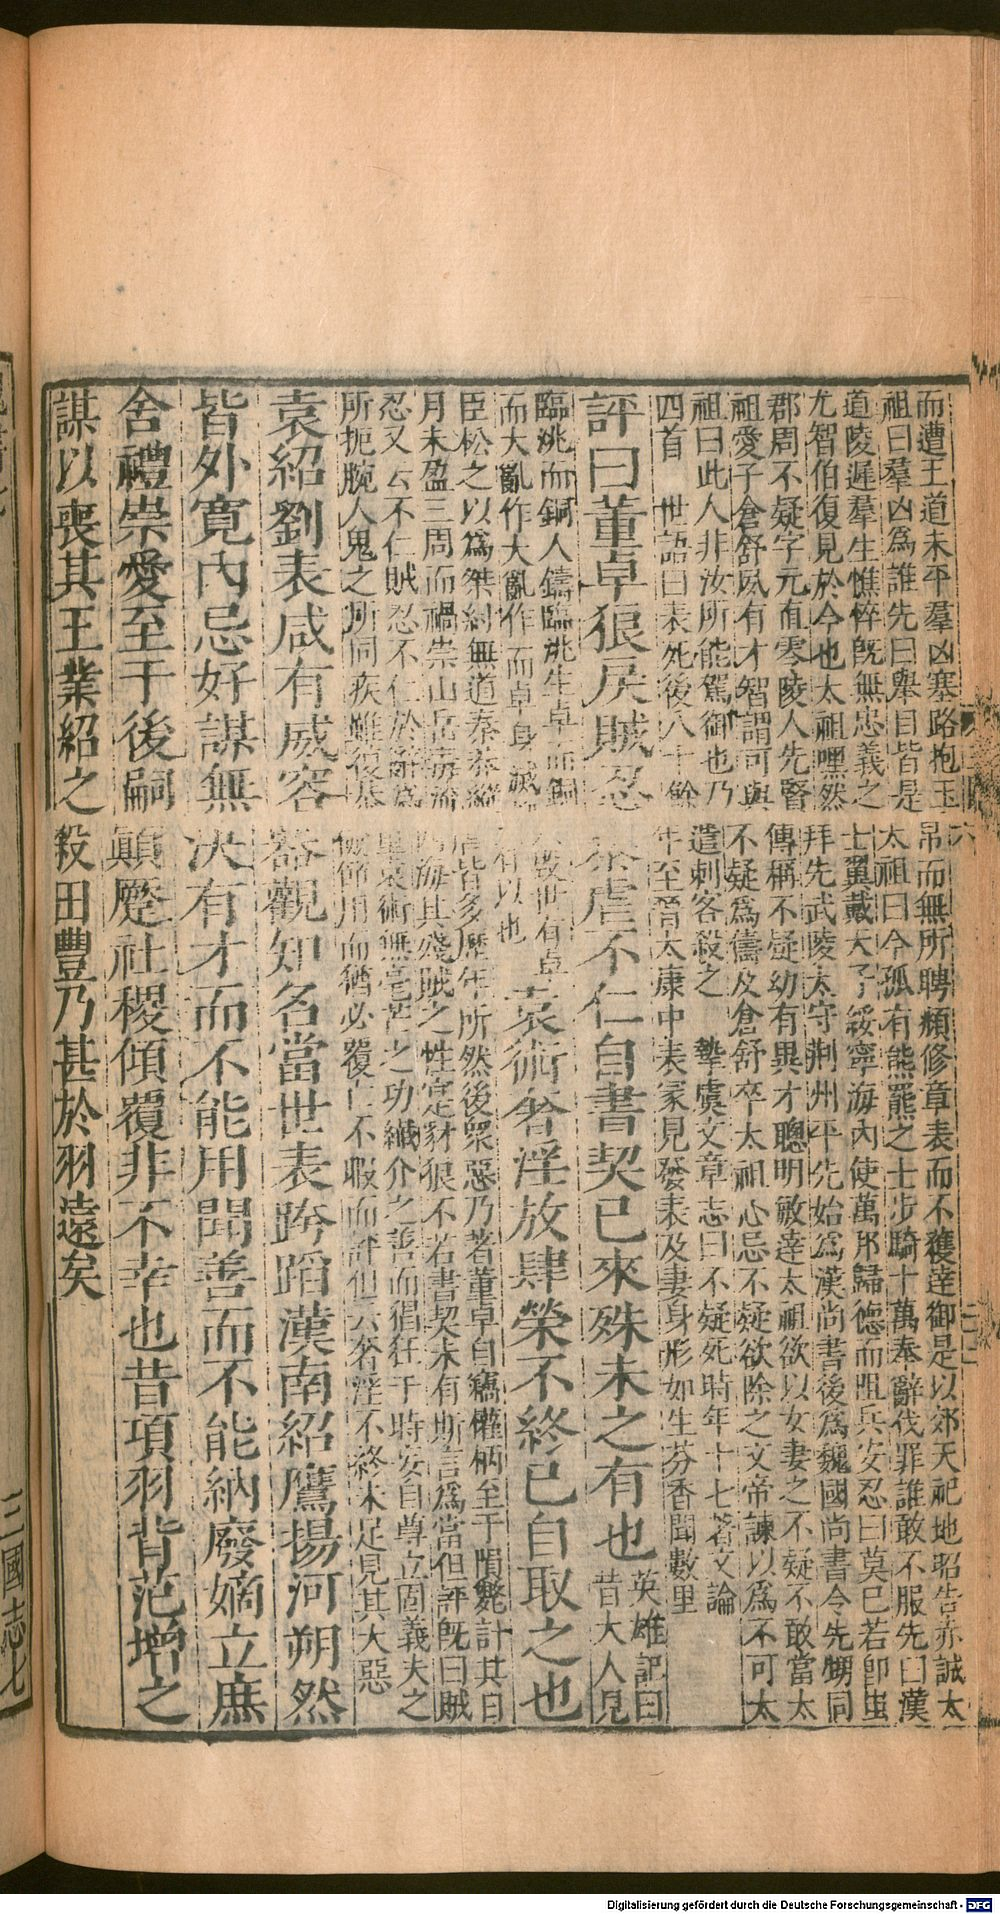 而遭王道未平羣凶塞路抱玉帛而無所聘頫修章表而不獲達御是以郊天祀地昭告赤誠太
祖曰羣凶爲誰先曰舉目皆是太祖曰今孤有熊羆之士步騎十萬奉辭伐罪誰敢不服先曰漢
道陵遲羣生憔悴旣無忠義之士翼戴天子綏寧海內使萬邦歸德而阻兵安忍曰莫己若卽蚩
尤智伯復見於今也太祖嘿然拜先武陵太守荆州平先始爲漢尚書後爲魏國尚書令先甥同
郡周不疑字元直零陵人先賢傳稱不疑幼有異才聰明敏達太祖欲以女妻之不疑不敢當太
祖愛子倉舒夙有才智謂可與不疑爲儔及倉舒卒太祖心忌不疑欲除之文帝諫以爲不可太
祖曰此人非汝所能駕御也乃遣刺客殺之　摯虞文章志曰不疑死時年十七著文論
四首　世語曰表死後八十餘年至晉太康中表冢見發表及妻身形如生芬香聞數里
評曰董卓狼戾賊忍暴虐不仁自書契已來殊未之有也
英雄記曰
昔大人見
臨洮而銅人鑄臨洮生卓而銅人毀世有卓
而大亂作大亂作而卓身滅抑有以也
袁術奢淫放肆榮不終已自取之也
臣松之以爲桀紂無道秦莽縱虐皆多歷年所然後衆惡乃著董卓自竊權柄至于隕斃計其日
月未盈三周而禍崇山岳毒流四海其殘賊之性寔豺狼不若書契未有斯言爲當但評旣曰賊
忍又云不仁賊忍不仁於辭爲重袁術無毫芒之功纖介之善而猖狂于時妄自尊立固義夫之
所扼腕人鬼之所同疾雖復恭儉節用而猶必覆亡不暇而評但云奢淫不終未足見其大惡
袁紹劉表咸有威容器觀知名當世表跨蹈漢南紹鷹揚河朔然
皆外寛內忌好謀無決有才而不能用聞善而不能納廢嫡立庶
舍禮崇愛至于後嗣顚蹙社稷傾覆非不幸也昔項羽背范增之
謀以喪其王業紹之殺田豐乃甚於羽遠矣
三國志七
Digitalisierung gefördert durch die Deutsche Forschungsgemeinschaft - DFG